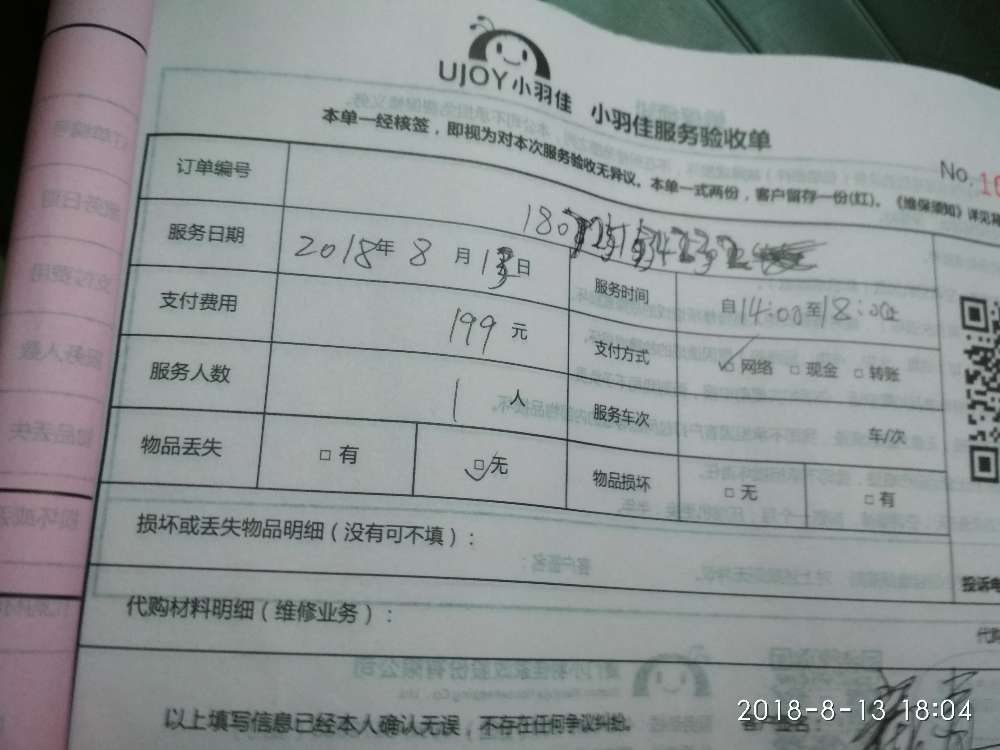 UJOY小羽佳 小羽佳服务验收单
本单一经核签，即视为对本次服务验收无异议。本单一式两份，客户留存一份(红)。《维保须知》详见
No. 10
订单编号 180
服务日期 2018年8月13日 服务时间 自14:00至18:00止
支付费用 199元 支付方式 网络 现金 转账
服务人数 1人 服务车次 车/次
物品丢失 有 无 物品损坏 无 有
损坏或丢失物品明细（没有可不填）：
投诉电
代购材料明细（维修业务）：
代购
以上填写信息已经本人确认无误，不存在任何争议纠纷。
2018-8-13 18:04